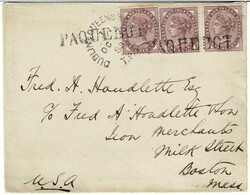 PAQUEBOT
PAQUEBOT
Fred. A. Houdlette Esq
c/o Fred A Houdlette & Son
Iron Merchants
Milk Street
Boston
Mass.
U.S.A